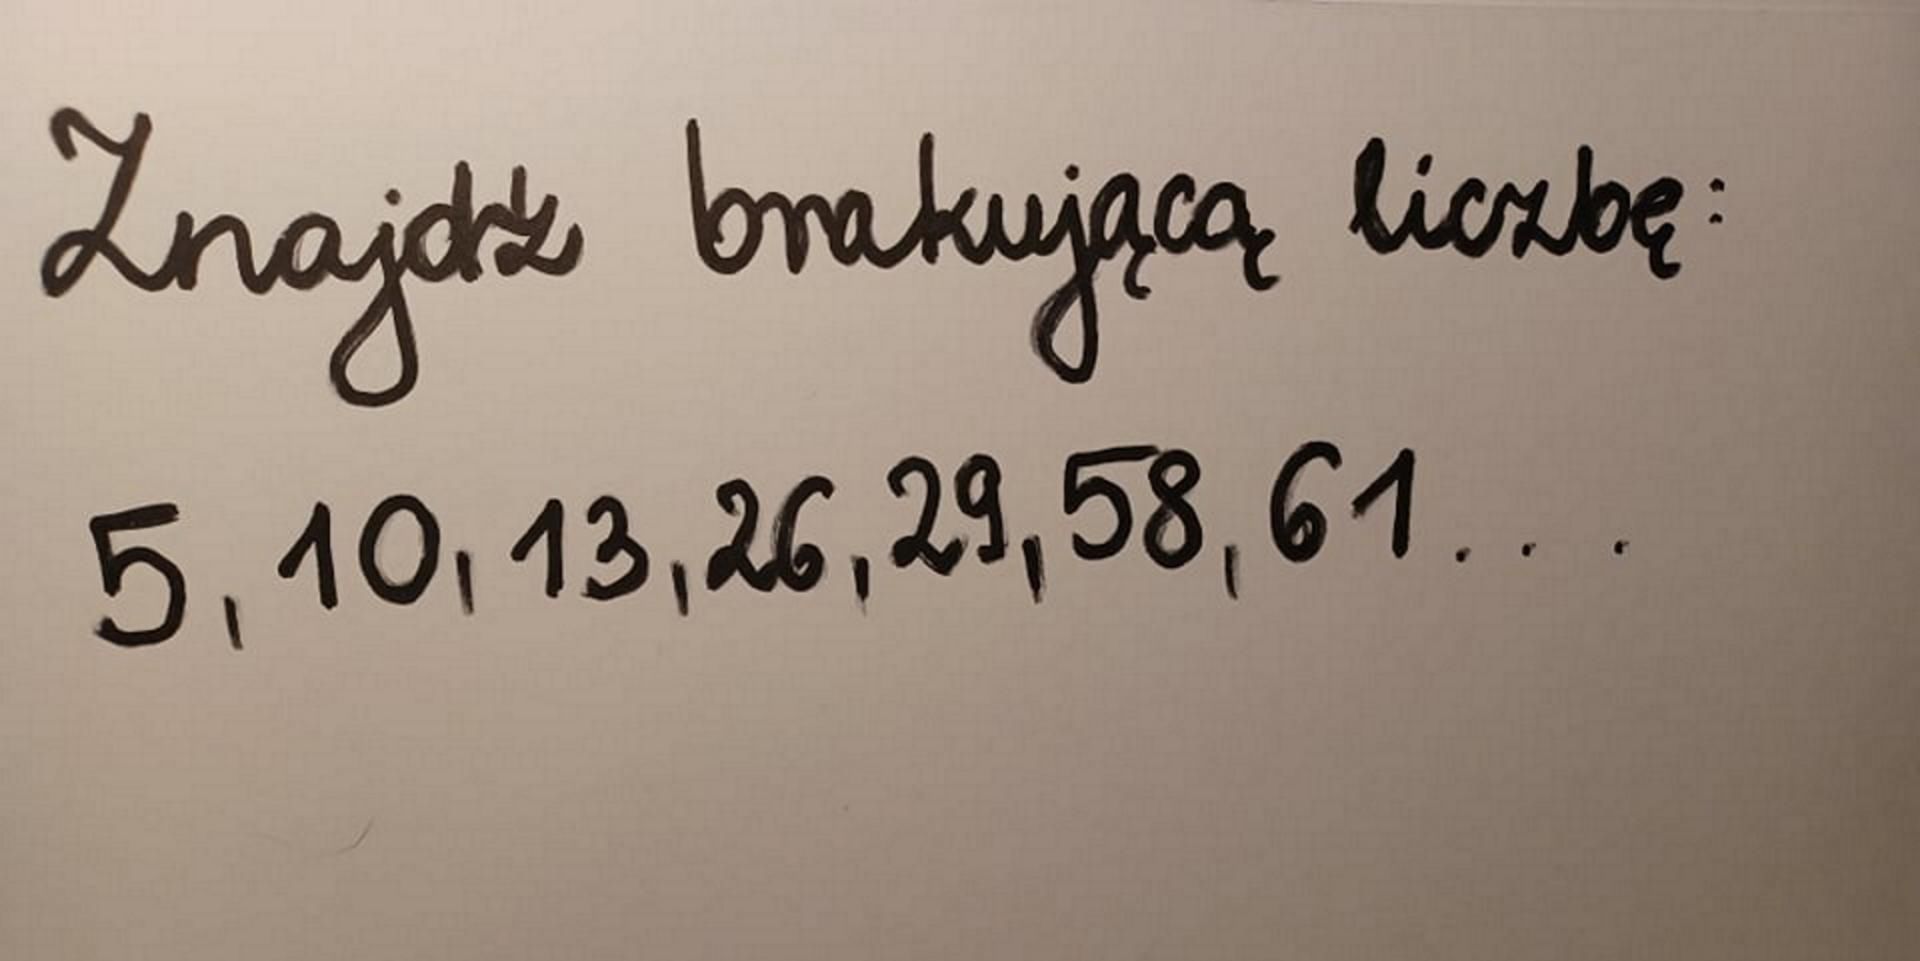 Znajdź brakującą liczbę:
5, 10, 13, 26, 29, 58, 61...